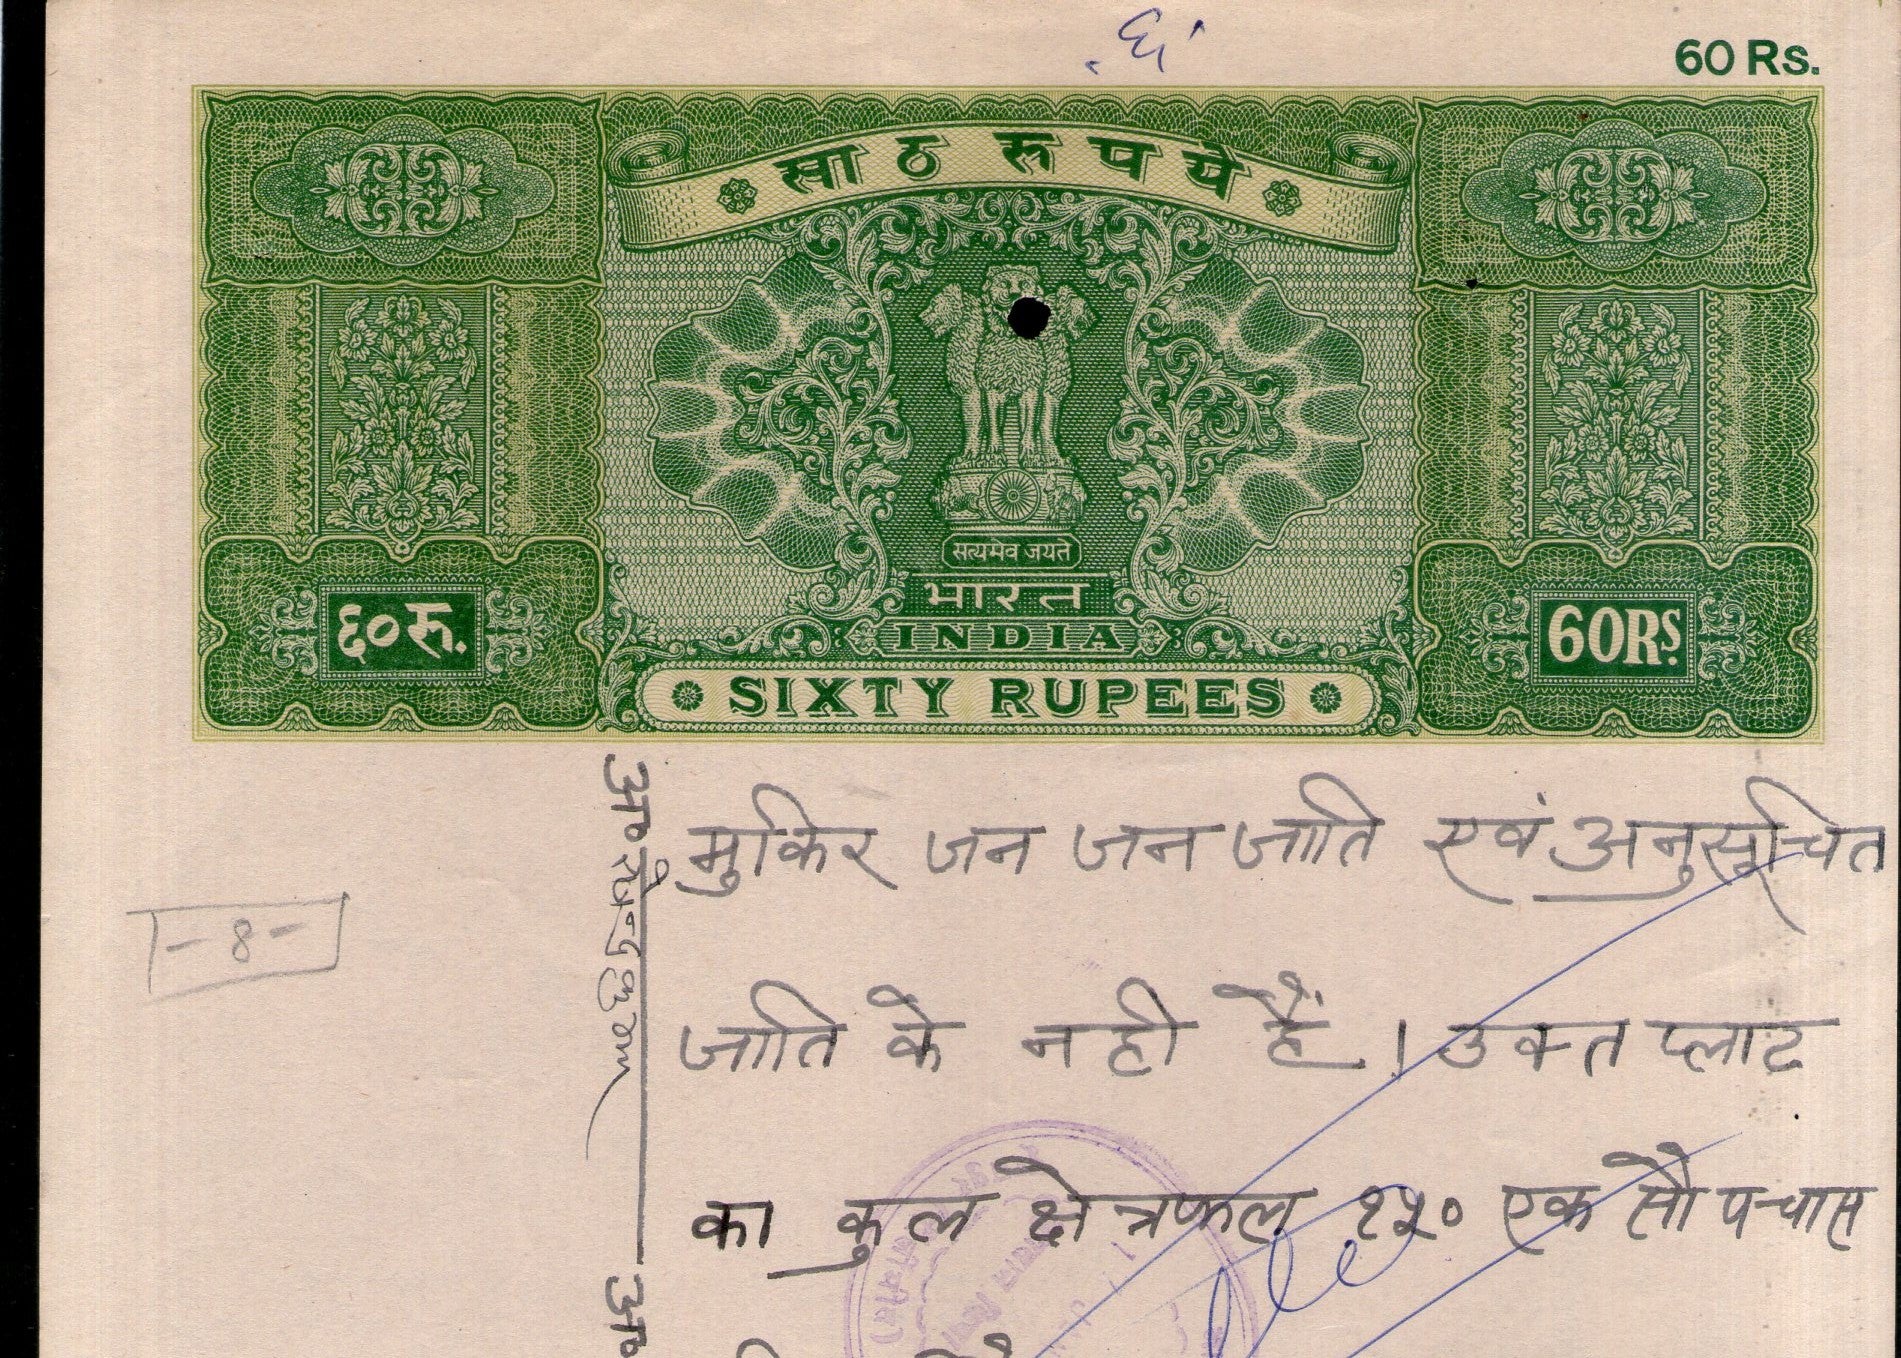 60 Rs.
साठ रुपये
सत्यमेव जयते
भारत
INDIA
६० रु.
60 RS.
SIXTY RUPEES
मुकिर जन जन जाति एवं अनुसूचित
- 8 -
जाति के नही हैं । उक्त प्लाट
का कुल क्षेत्रफल १५० एक सौ पचास